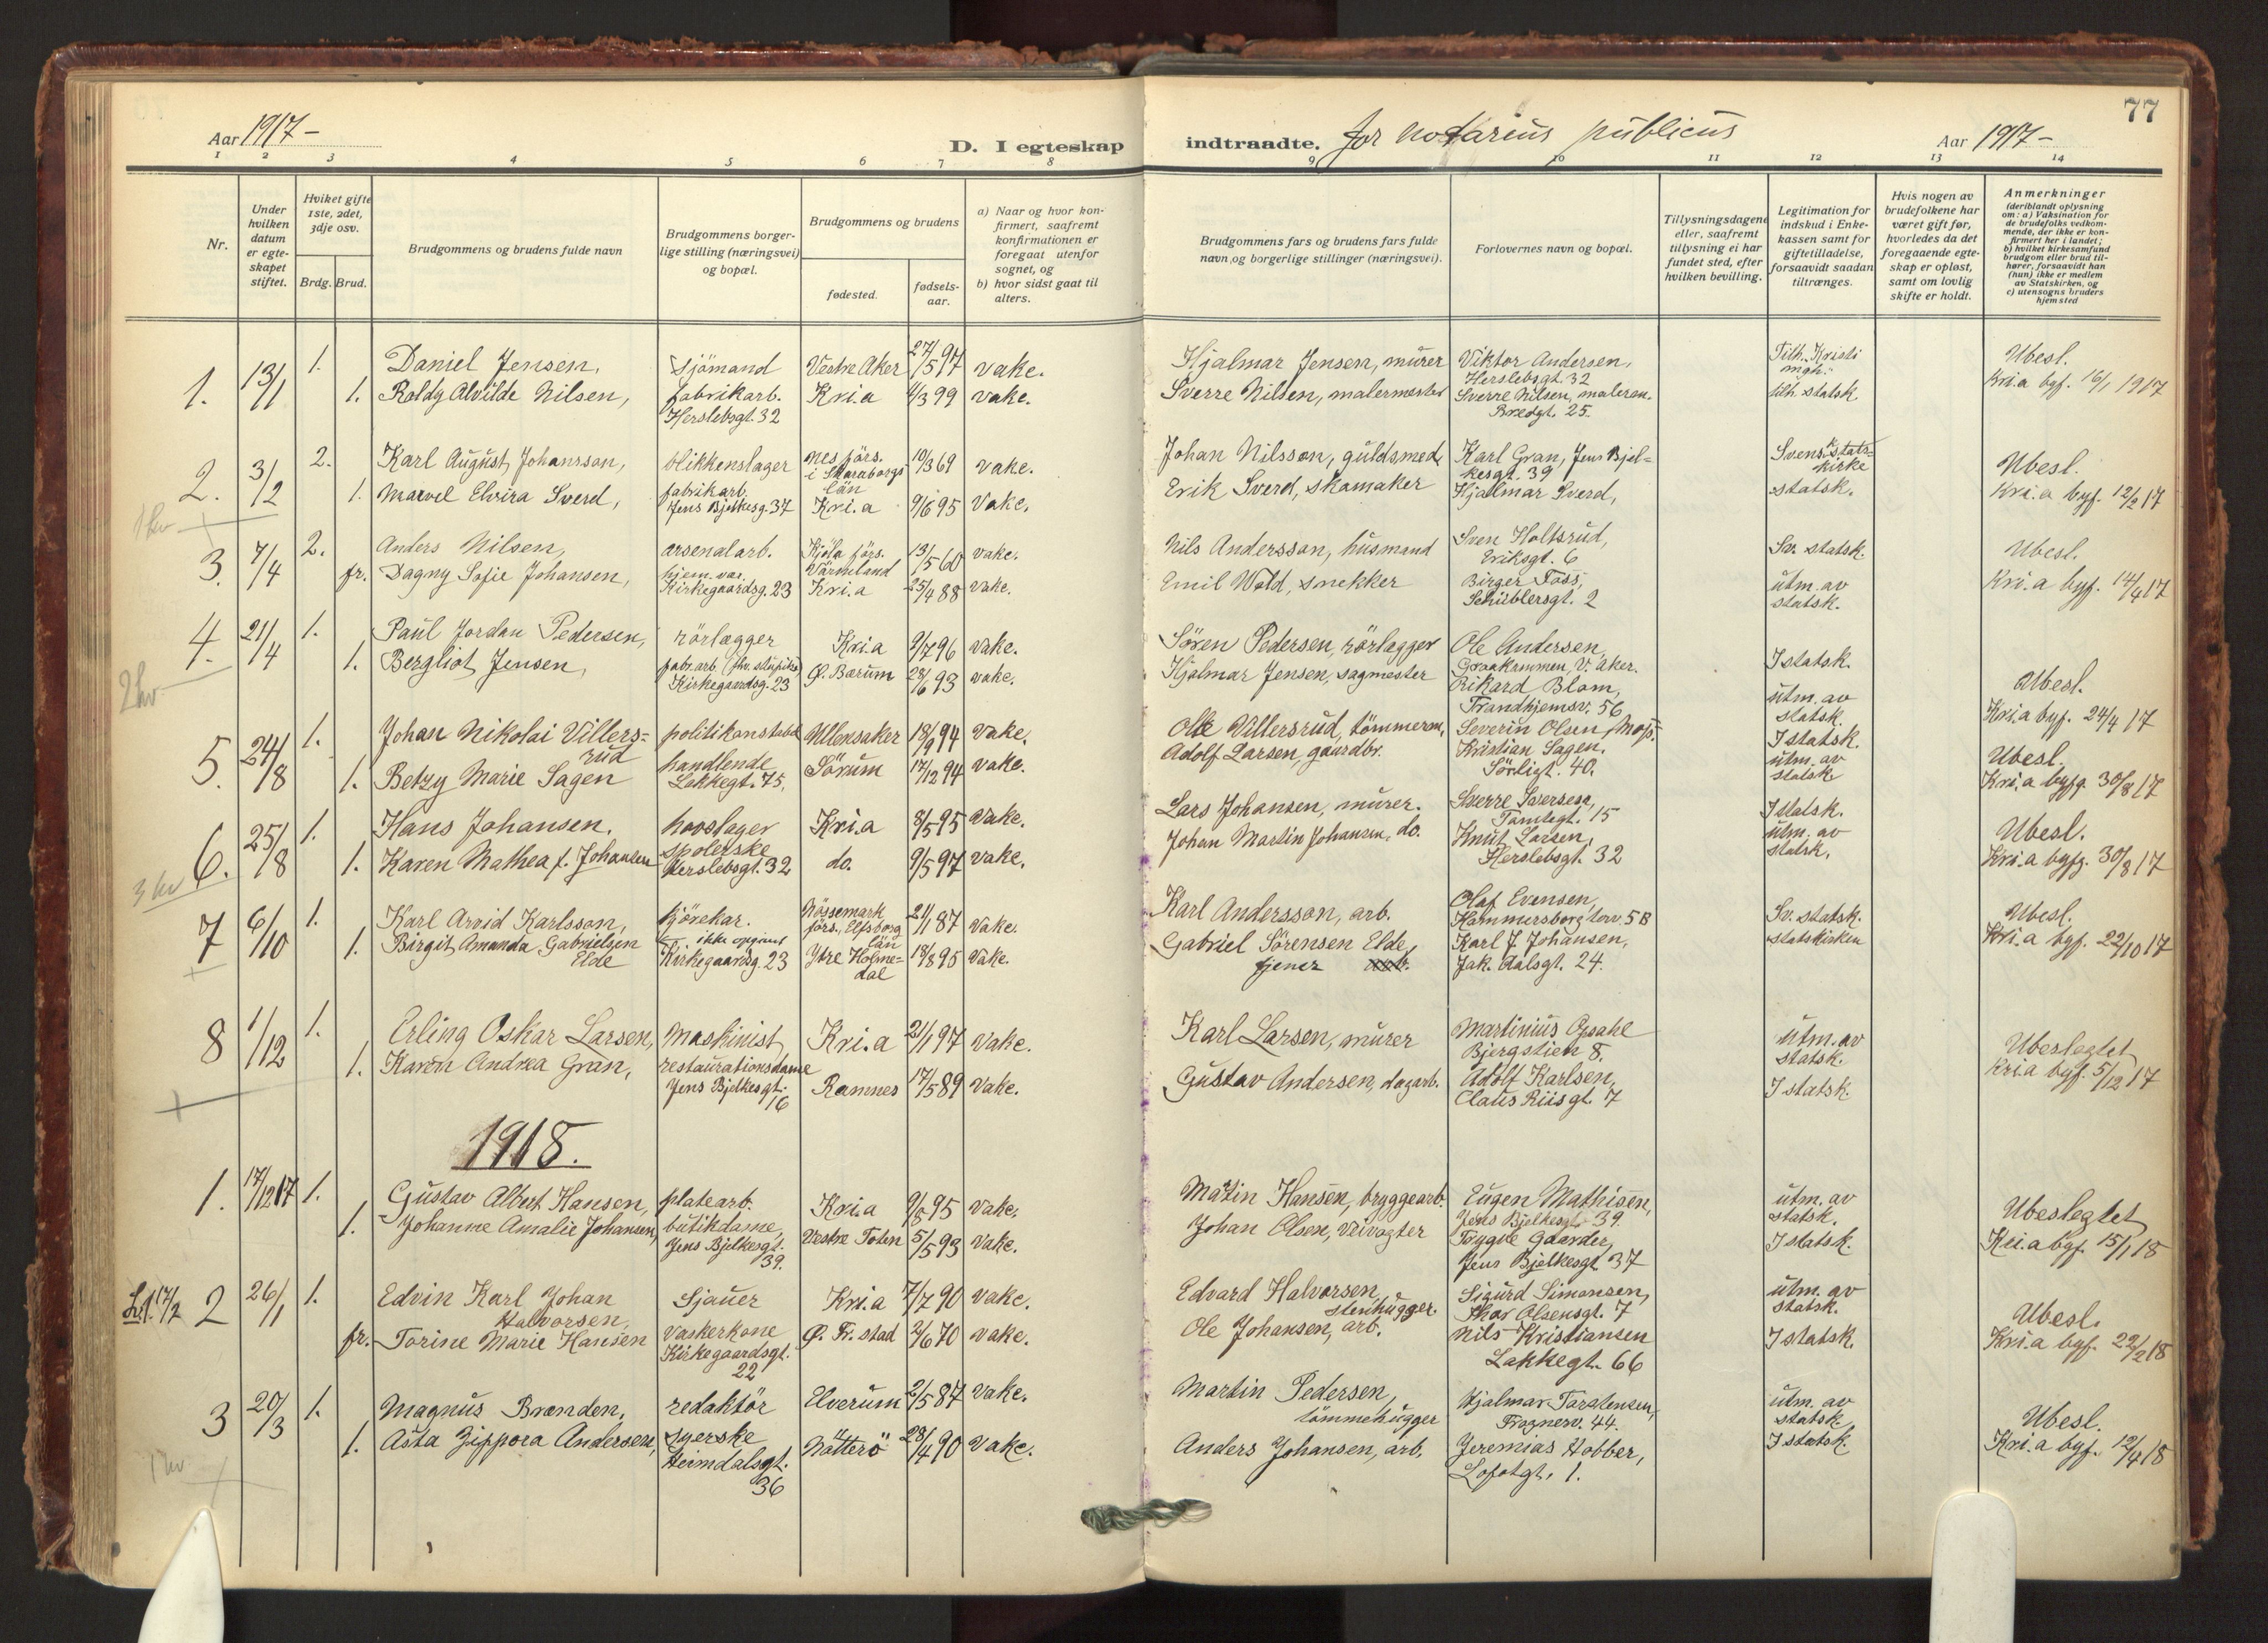 77
Aar 1917 –
D. I egteskap
indtraadte. for notarius publicus
Aar 1917 –
1 2 3 4 5 6 7 8 9 10 11 12 13 14
Nr.
Under hvilken datum er egteskapet stiftet.
Hviket gifte 1ste, 2det, 3dje osv.
Brdg. Brud.
Brudgommens og brudens fulde navn
Brudgommens borgerlige stilling (næringsvei) og bopæl.
Brudgommens og brudens
fødested.
fødselsaar.
a) Naar og hvor konfirmert, saafremt konfirmationen er foregaat utenfor sognet, og
b) hvor sidst gaat til alters.
Brudgommens fars og brudens fars fulde navn og borgerlige stillinger (næringsvei).
Forlovernes navn og bopæl.
Tillysningsdagene eller, saafremt tillysning ei har fundet sted, efter hvilken bevilling.
Legitimation for indskud i Enkekassen samt for giftetilladelse, forsaavidt saadan tiltrænges.
Hvis nogen av brudefolkene har været gift før, hvorledes da det foregaaende egteskap er opløst, samt om lovlig skifte er holdt.
Anmerkninger
(deriblandt oplysning om: a) Vaksination for de brudefolks vedkommende, der ikke er konfirmert her i landet; b) hvilket kirkesamfund brudgom eller brud tilhører, forsaavidt han (hun) ikke er medlem av Statskirken, og c) utensogns bruders hjemsted
1. 13/1 1. Daniel Jensen, Sjömand Vestre Aker 27/5 97 vake. Hjalmar Jensen, murer Viktor Andersen, Herslebsgt. 32 Tilh. Kristi mgh. Ubesl.
1. Roldg Alvilde Nilsen, fabrikarb. Herslebsgt. 32 Kri.a 4/3 99 vake. Sverre Nilsen, malermester Sverre Nilsen, malerm. Bredgt. 25. tilh. statsk. Kri.a byf. 16/1 1917
2. 3/2 2. Karl August Johansson, blikkenslager Nes förs. i Skaraborgs län 10/3 69 vake. Johan Nilsson, guldsmed Karl Gran, Jens Bjelkesgt. 39 Svensk statskirke Ubesl.
1. Marvel Elvira Sverd, fabrikarb. Jens Bjelkesg. 37 Kri.a 9/6 95 Vake. Erik Sverd, skomaker Hjalmar Sverd, statsk. Kri.a byf. 12/2 17
3. 7/4 2. Anders Nilsen, arsenalarb. Kjöla förs. Värmland 13/5 60 vake. Nils Andersson, husmand Sven Holtsrud, Eriksgt. 6 Sv. statsk. Ubesl.
fr. Dagny Sofie Johansen, hjem.vær. Kirkegaardsg. 23 Kri.a 25/4 88 vake. Emil Wold, snekker Birger Foss, Schüblersgt. 2 utm. av statsk. Kri.a byf. 14/4 17
4. 21/4 1. Paul Jordan Pedersen, rörlægger Kri.a 9/7 96 vake. Sören Pedersen, rörlægger Ole Andersen, Graakammen, V. Aker. I statsk. Ubesl.
2 hv
1. Bergliot Jensen, fabr.arb. Kirkegaardsg. 23 Ø. Bærum 28/6 93 vake. Hjalmar Jensen, sagmester Rikard Blom, Trondhjemsv. 56 utm. av statsk. Kri.a byf. 24/4 17
5. 24/8 1. Johan Nikolai Villersrud politikonstabel Ullensaker 18/9 94 vake. Ole Villersrud, tömmerm. Severin Olsen, Moss. I statsk. Ubesl.
1. Betzy Marie Sagen handlende Lakkegt. 75, Sörum 17/12 94 vake. Adolf Larsen, gaardbr. Kristian Sagen, Sörligt. 40. utm. av statsk Kri.a byfg. 30/8 17
6. 25/8 1. Hans Johansen, hovslager Kri.a 8/5 95 vake. Lars Johansen, murer. Sverre Sverresen, Tomtegt. 15 I statsk. Ubesl.
3 hv
1. Karen Mathea f. Johansen spolerske Herslebsgt. 32 do. 9/5 97 vake. Johan Martin Johansen, do. Knut Larsen, Herslebsgt. 32 utm. av statsk. Kri.a byfg. 30/8 17
7 6/10 1. Karl Arvid Karlsson, kjörekar. Nössemark förs., Elfsborg län 21/1 87 vake. Karl Andersson, arb. Olaf Evensen, Hammersborg torv 5B Sv. statsk. Ubesl.
1. Birgit Amanda Gabrielsen Elde ikke opgivet Kirkegaardsg. 23 Ytre Holmedal 18/8 95 vake. Gabriel Sörensen Elde, tjener Karl J. Johansen, Jak. Aalsgt. 24. statskirken Kri.a byf. 22/10 17
8 1/12 1. Erling Oskar Larsen, Maskinist Kri.a 21/1 97 vake. Karl Larsen, murer Martinius Opsahl Bjergstien 8. utm. av statsk. Ubeslegtet
1. Karen Andrea Gran, restaurationsdame Jens Bjelkesgt. 16 Ramnes 17/5 89 vake. Gustav Andersen, dagarb. Adolf Karlsen, Claus Riisgt. 7 I statsk. Kria byf. 5/12 17
1918.
1. 17/12 17 1. Gustav Albert Hansen, platearb. Kri.a 9/8 95 vake. Martin Hansen, bryggearb. Eugen Mathisen, Jens Bjelkesgt. 39. utm. av statsk. Ubeslegtet
1. Johanne Amalie Johansen, butikdame, Jens Bjelkesgt. 39. Vestre Toten 5/5 93 vake. Johan Olsen, veivogter Trygve Gaarder, Jens Bjelkesgt 37 I statsk. Kri.a byf. 15/1 18
17/2 2 26/1 1. Edvin Karl Johan Halvorsen, Sjauer Kri.a 7/7 90 vake. Edvard Halvorsen, stenhugger. Sigurd Simonsen, Thor Olsensgt. 7 utm. av statsk. Ubesl.
fr. Torine Marie Hansen vaskerkone Kirkegaardsgt. 22 Ø. Fr.stad 2/6 70 vake. Ole Johansen, arb. Nils Kristiansen Lakkegt. 66 I statsk. Kri.a byf. 22/2 18
3 20/3 1. Magnus Brænden, redaktör Elverum 2/5 87 vake. Martin Pedersen, tömmehugger Hjalmar Torstensen, Frognerv. 44. utm. av statsk. Ubesl.
1. Asta Zippora Andersen, syerske Heimdalsgt. 36 Nötterö 28/4 90 vake. Anders Johansen, arb. Jeremias Hobber, Lofotgt. 1. I statsk. Kri.a byf. 12/4 18
1 hv